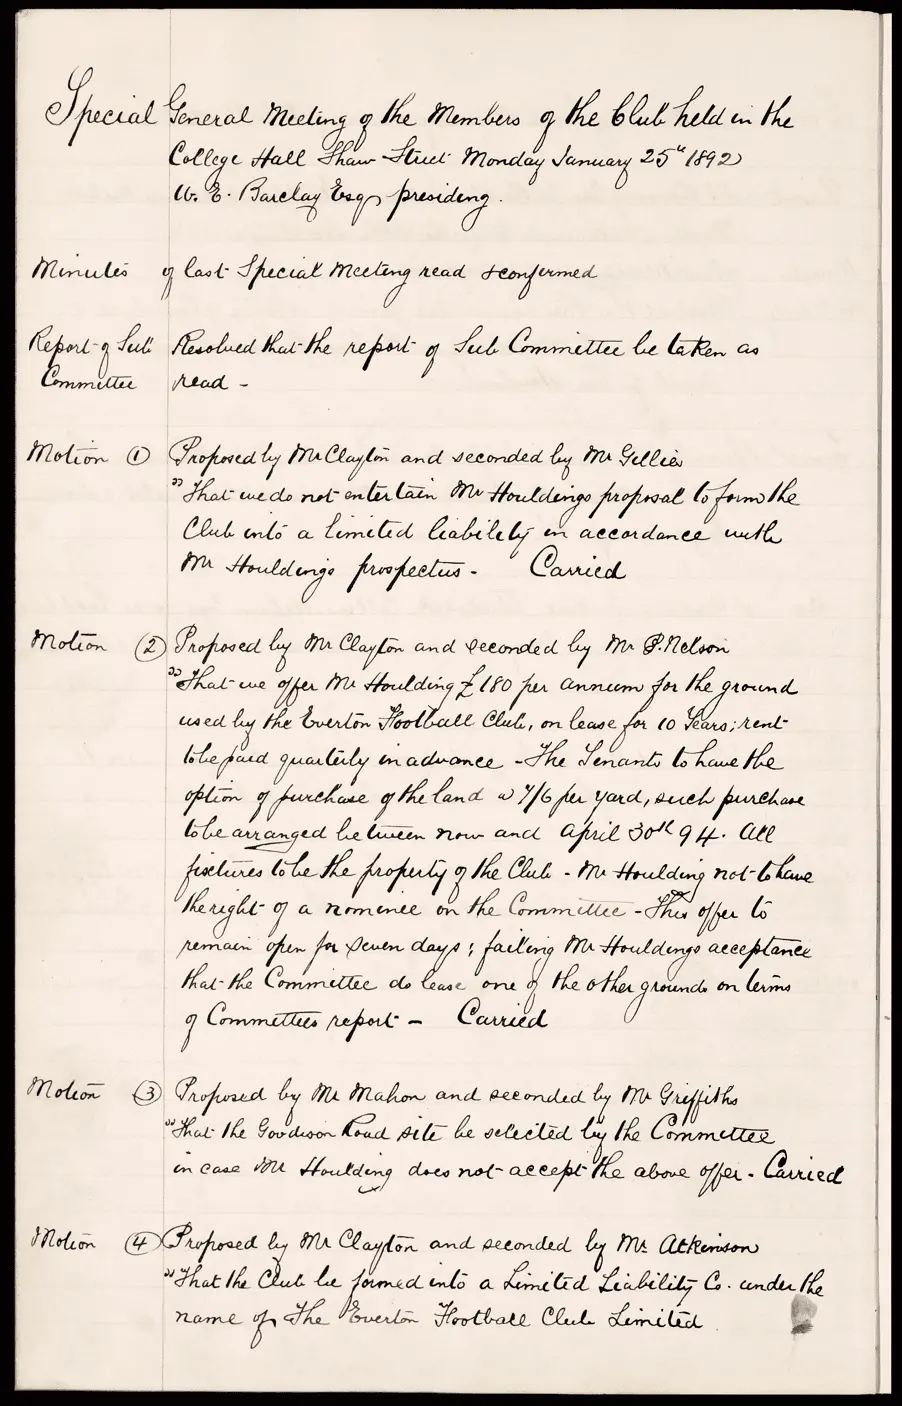 Special General Meeting of the Members of the Club held in the
College Hall Shaw Street Monday January 25th 1892
W. E. Barclay Esq presiding.
Minutes of last Special Meeting read & confirmed
Report of Sub Resolved that the report of Sub Committee be taken as
Committee read -
Motion ① Proposed by Mr Clayton and seconded by Mr Gillies
"That we do not entertain Mr Houldings proposal to form the
Club into a limited liability in accordance with
Mr Houldings prospectus - Carried
Motion ② Proposed by Mr Clayton and seconded by Mr P. Nelson
"That we offer Mr Houlding £180 per annum for the ground
used by the Everton Football Club, on lease for 10 Years; rent
to be paid quarterly in advance - The Tenants to have the
option of purchase of the land @ 7/6 per yard, such purchase
to be arranged between now and April 30th 94. All
fixtures to be the property of the Club - Mr Houlding not to have
the right of a nominee on the Committee - This offer to
remain open for seven days; failing Mr Houldings acceptance
that the Committee do lease one of the other grounds on terms
of Committees report - Carried
Motion ③ Proposed by Mr Mahon and seconded by Mr Griffiths
"That the Goodison Road site be selected by the Committee
in case Mr Houlding does not accept the above offer - Carried
Motion ④ Proposed by Mr Clayton and seconded by Mr Atkinson
"That the Club be formed into a Limited Liability Co. under the
name of The Everton Football Club Limited